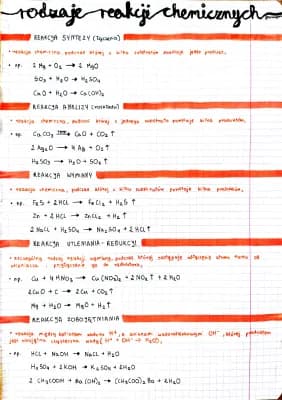 rodzaje reakcji chemicznych
REAKCJA SYNTEZY (łączenia)
• reakcja chemiczna, podczas której z kilku substratów powstaje jeden produkt.
• np. 2 Mg + O₂ → 2 MgO
SO₃ + H₂O → H₂SO₄
CaO + H₂O → Ca(OH)₂
REAKCJA ANALIZY (rozkładu)
• reakcja chemiczna, podczas której z jednego substratu powstaje kilka produktów.
• np. CaCO₃ → CaO + CO₂ ↑
2 Ag₂O → 4 Ag + O₂ ↑
H₂SO₃ → H₂O + SO₂ ↑
REAKCJA WYMIANY
• reakcja chemiczna, podczas której z kilku substratów powstaje kilka produktów.
• np. FeS + 2 HCl → FeCl₂ + H₂S ↑
Zn + 2 HCl → ZnCl₂ + H₂ ↑
2 NaCl + H₂SO₄ → Na₂SO₄ + 2 HCl ↑
REAKCJA UTLENIANIA - REDUKCJI
• szczególny rodzaj reakcji wymiany, podczas której następuje odłączenie atomu tlenu od
utleniacza i przyłączenie go do reduktora.
• np. Cu + 4 HNO₃ → Cu(NO₃)₂ + 2 NO₂ ↑ + 2 H₂O
2 CuO + C → 2 Cu + CO₂ ↑
Mg + H₂O → MgO + H₂ ↑
REAKCJA ZOBOJĘTNIANIA
• reakcja między kationem wodoru H⁺, a anionem wodorotlenkowym OH⁻, której produktem
jest obojętna cząsteczka wody (H⁺ + OH⁻ → H₂O).
• np. HCl + NaOH → NaCl + H₂O
H₂SO₄ + 2 KOH → K₂SO₄ + 2 H₂O
2 CH₃COOH + Ba(OH)₂ → (CH₃COO)₂Ba + 2 H₂O